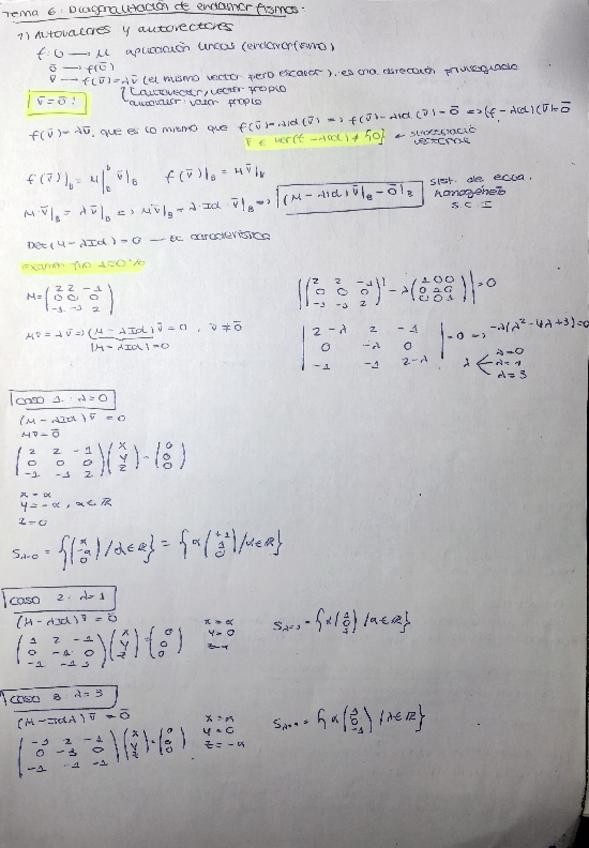 Tema 6: Diagonalización de endomorfismos:
1) Autovalores y autovectores
f: U → U aplicación lineal (endomorfismo)
ū → f(ū)
v̄ → f(v̄) = λv̄ (el mismo vector pero escalar), es una dirección privilegiada
autovector, vector propio
autovalor, valor propio
v̄ = ō !
f(v̄) = λv̄, que es lo mismo que f(v̄) = λid(v̄) => f(v̄) - λid(v̄) = ō => (f - λid)(v̄) = ō
v̄ ∈ ker(f - λid) ≠ {ō} ← subespacio vectorial
f(v̄)|_B = M|_B^B v̄|_B f(v̄)|_B = M v̄|_B
M·v̄|_B = λv̄|_B => Mv̄|_B = λ·Id·v̄|_B => (M - λId)v̄|_B = ō|_B
sist. de ecua. homogéneo
S.C.I
Det(M - λId) = 0 — ec característica
examen fijo 100%
M = (2 2 -1
0 0 0
-1 -1 2)
|(2 2 -1
0 0 0
-1 -1 2) - λ(1 0 0
0 1 0
0 0 1)| = 0
Mv̄ = λv̄ => (M - λId)v̄ = 0, v̄ ≠ ō
|M - λId| = 0
|2-λ 2 -1
0 -λ 0
-1 -1 2-λ| = 0 => -λ(λ² - 4λ + 3) = 0
λ λ=0
λ=1
λ=3
caso 1: λ=0
(M - λId)v̄ = 0
Mv̄ = ō
(2 2 -1
0 0 0
-1 -1 2)(x y z) = (0 0 0)
x = α
y = -α, α ∈ ℝ
z = 0
caso 2: λ=1
(M - λId)v̄ = ō
(1 2 -1
0 -1 0
-1 -1 1)(x y z) = (0 0 0)
x = α
y = 0
caso 3: λ=3
(M - Idλ)v̄ = ō
(-1 2 -1
0 -3 0
-1 -1 -1)(x y z) = (0 0 0)
x = α
y = 0
z = -α